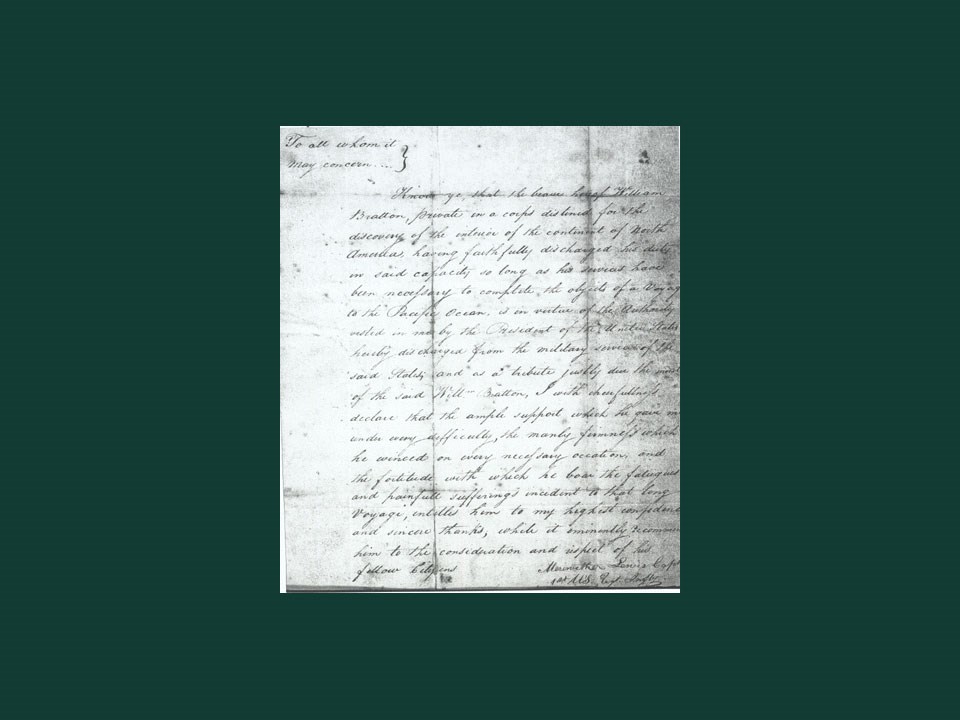 To all whom it
may concern....}
Know ye, that the brave William
Bratton, private in a corps destined for the
discovery of the interior of the continent of North
America, having faithfully discharged his duty
in said capacity so long as his services have
been necessary to complete the objects of a Voyag
to the Pacific Ocean, is in virtue of the Authority
vested in me by the President of the United States
hereby discharged from the military service of the
said States; and as a tribute justly due the merit
of the said Willm Bratton, I with cheerfulness
declare that the ample support which he gave me
under every difficulty, the manly firmness which
he evinced on every necessary ocation, and
the fortitude with which he boar the fatigues
and painfull sufferings incident to that long
Voyage, entitles him to my highest confidence
and sincere thanks, while it eminently recomm
him to the consideration and respect of his
fellow Citizens
Meriwether Lewis Capt
1st U.S. Regt